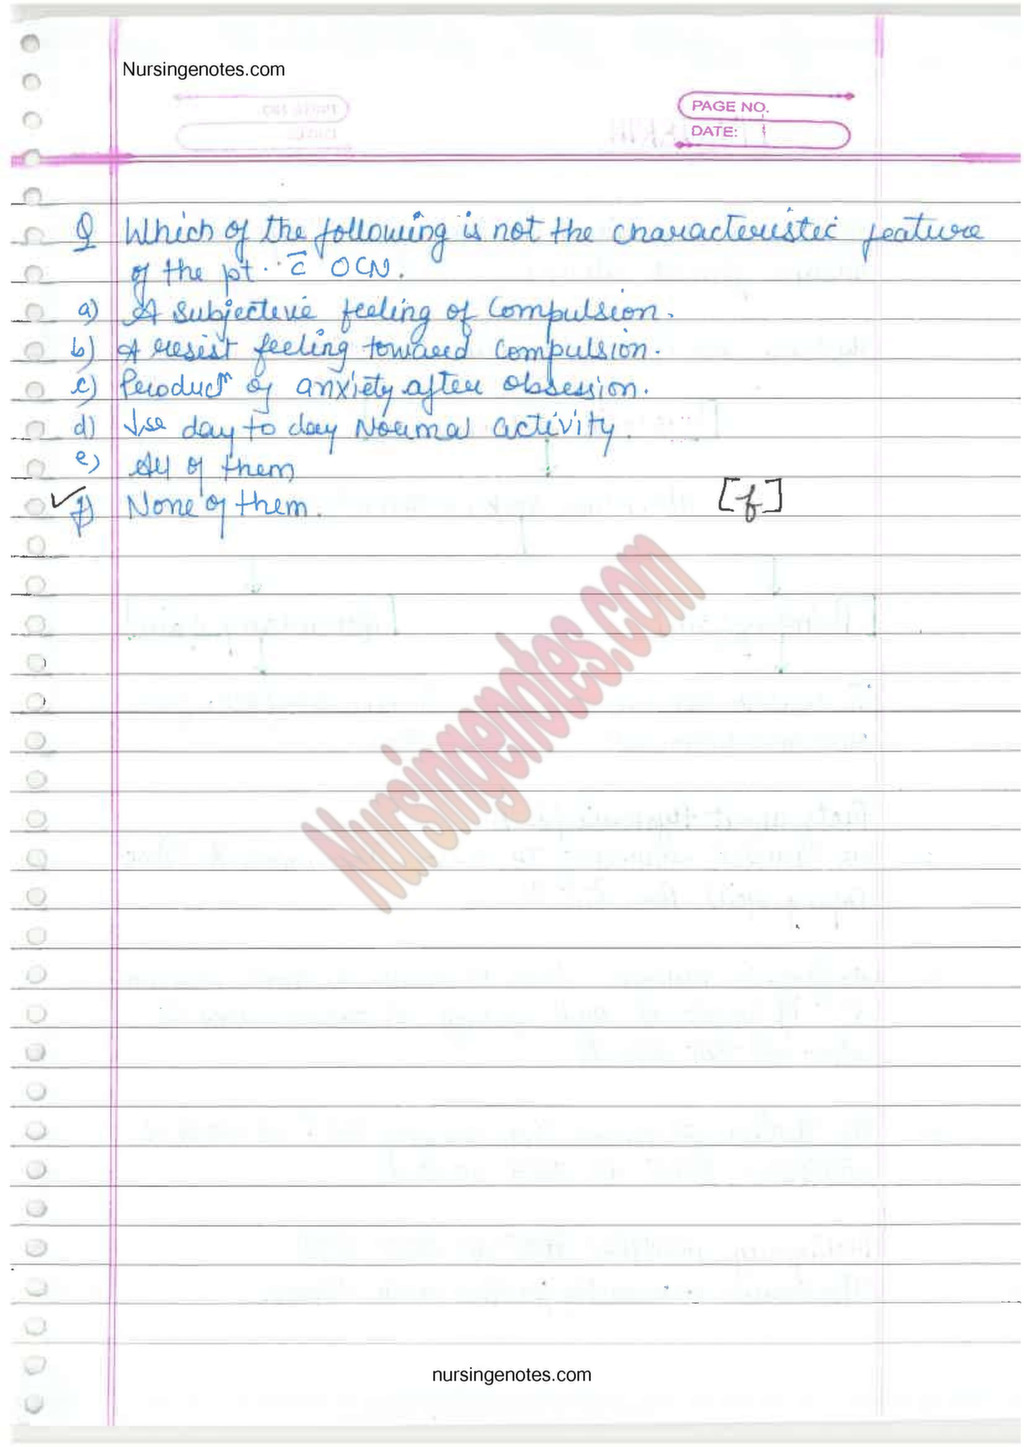 Nursingenotes.com
PAGE NO.
DATE:
Q Which of the following is not the characteristic feature
of the pt. c̄ OCN.
a) A subjective feeling of compulsion.
b) A resist feeling toward compulsion.
c) Productn of anxiety after obsession.
d) ↓se day to day Normal activity.
e) All of them
✓f) None of them. [f]
Nursingenotes.com
nursingenotes.com